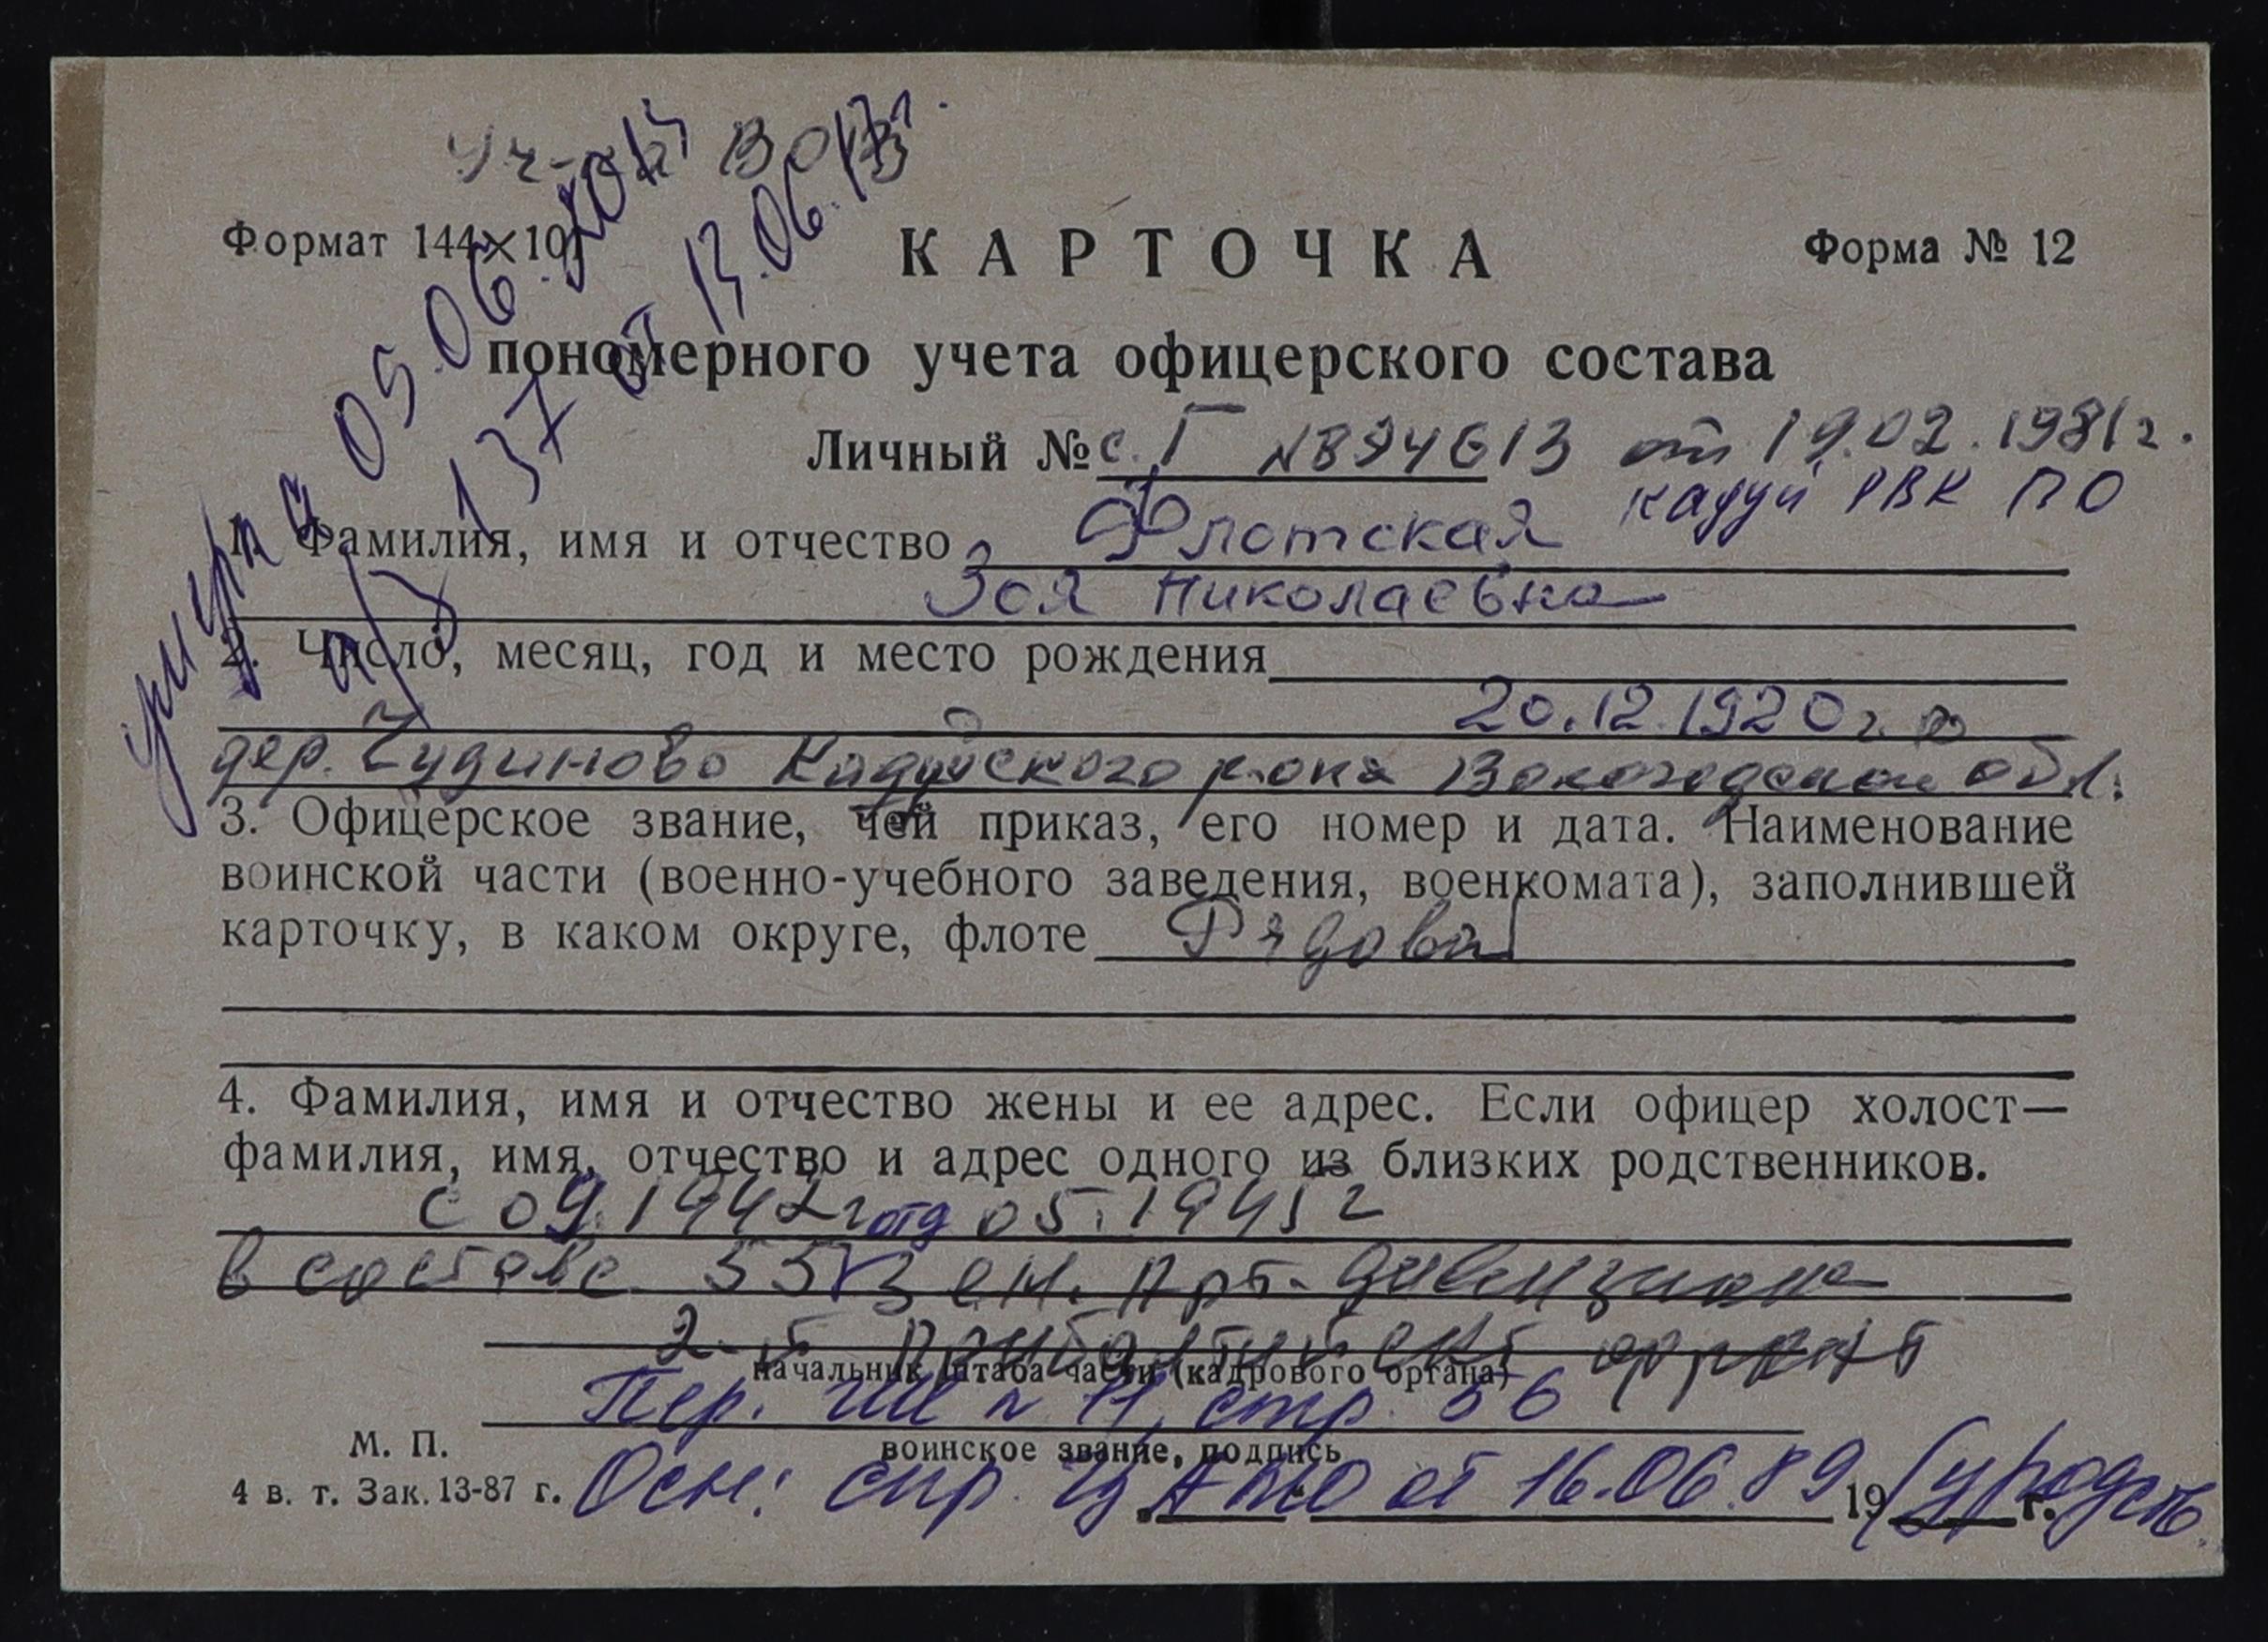 Уч-к ВОВ
умерла 05.06.2013
а/з 137 от 13.06.13г.
Формат 144×107
КАРТОЧКА
Форма № 12
пономерного учета офицерского состава
Личный № с. Г №894613 от 19.02.1981г.
Кадуй РВК ПО
1. Фамилия, имя и отчество Флотская
Зоя Николаевна
2. Число, месяц, год и место рождения
20.12.1920г.
дер. Чудиново Кадуйского р-она Вологодской обл.
3. Офицерское звание, чей приказ, его номер и дата. Наименование
воинской части (военно-учебного заведения, военкомата), заполнившей
карточку, в каком округе, флоте Рядовой
4. Фамилия, имя и отчество жены и ее адрес. Если офицер холост—
фамилия, имя, отчество и адрес одного из близких родственников.
с 09.1942г 05.1945г
в составе зен. Арт. дивизиона
2-й Прибалтийский фронт
начальник штаба части (кадрового органа)
Пер. ГШ № 11, стр. 56
воинское звание, подпись
М. П.
Осн: спр. ЦАМО от 16.06.89 19 г.
4 в. т. Зак. 13-87 г.